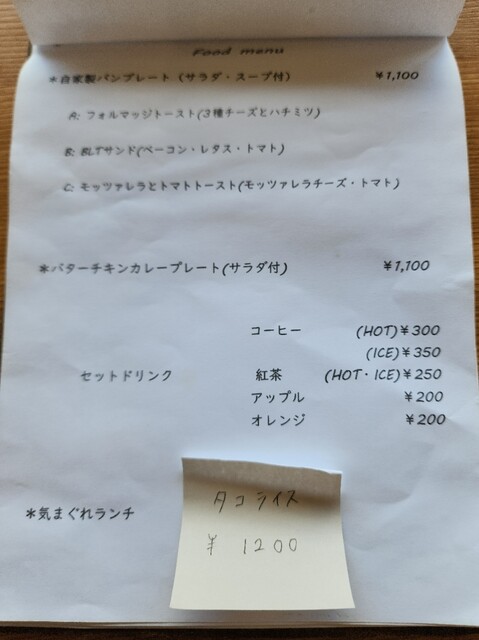 Food menu
*自家製パンプレート（サラダ・スープ付） ¥1,100
A: フォルマッジトースト(3種チーズとハチミツ)
B: BLTサンド(ベーコン・レタス・トマト)
C: モッツァレラとトマトトースト(モッツァレラチーズ・トマト)
*バターチキンカレープレート(サラダ付) ¥1,100
コーヒー (HOT)¥300
(ICE)¥350
セットドリンク 紅茶 (HOT・ICE)¥250
アップル ¥200
オレンジ ¥200
*気まぐれランチ
タコライス
¥ 1200